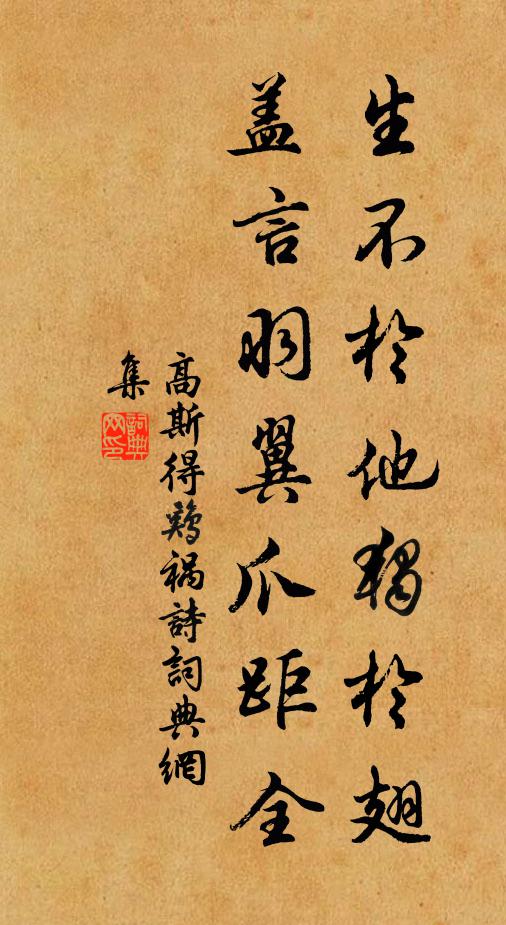 生不於他獨於翅
盖言羽翼爪距全
高斯得鷄禍詩詞典網
集
詞典
网印